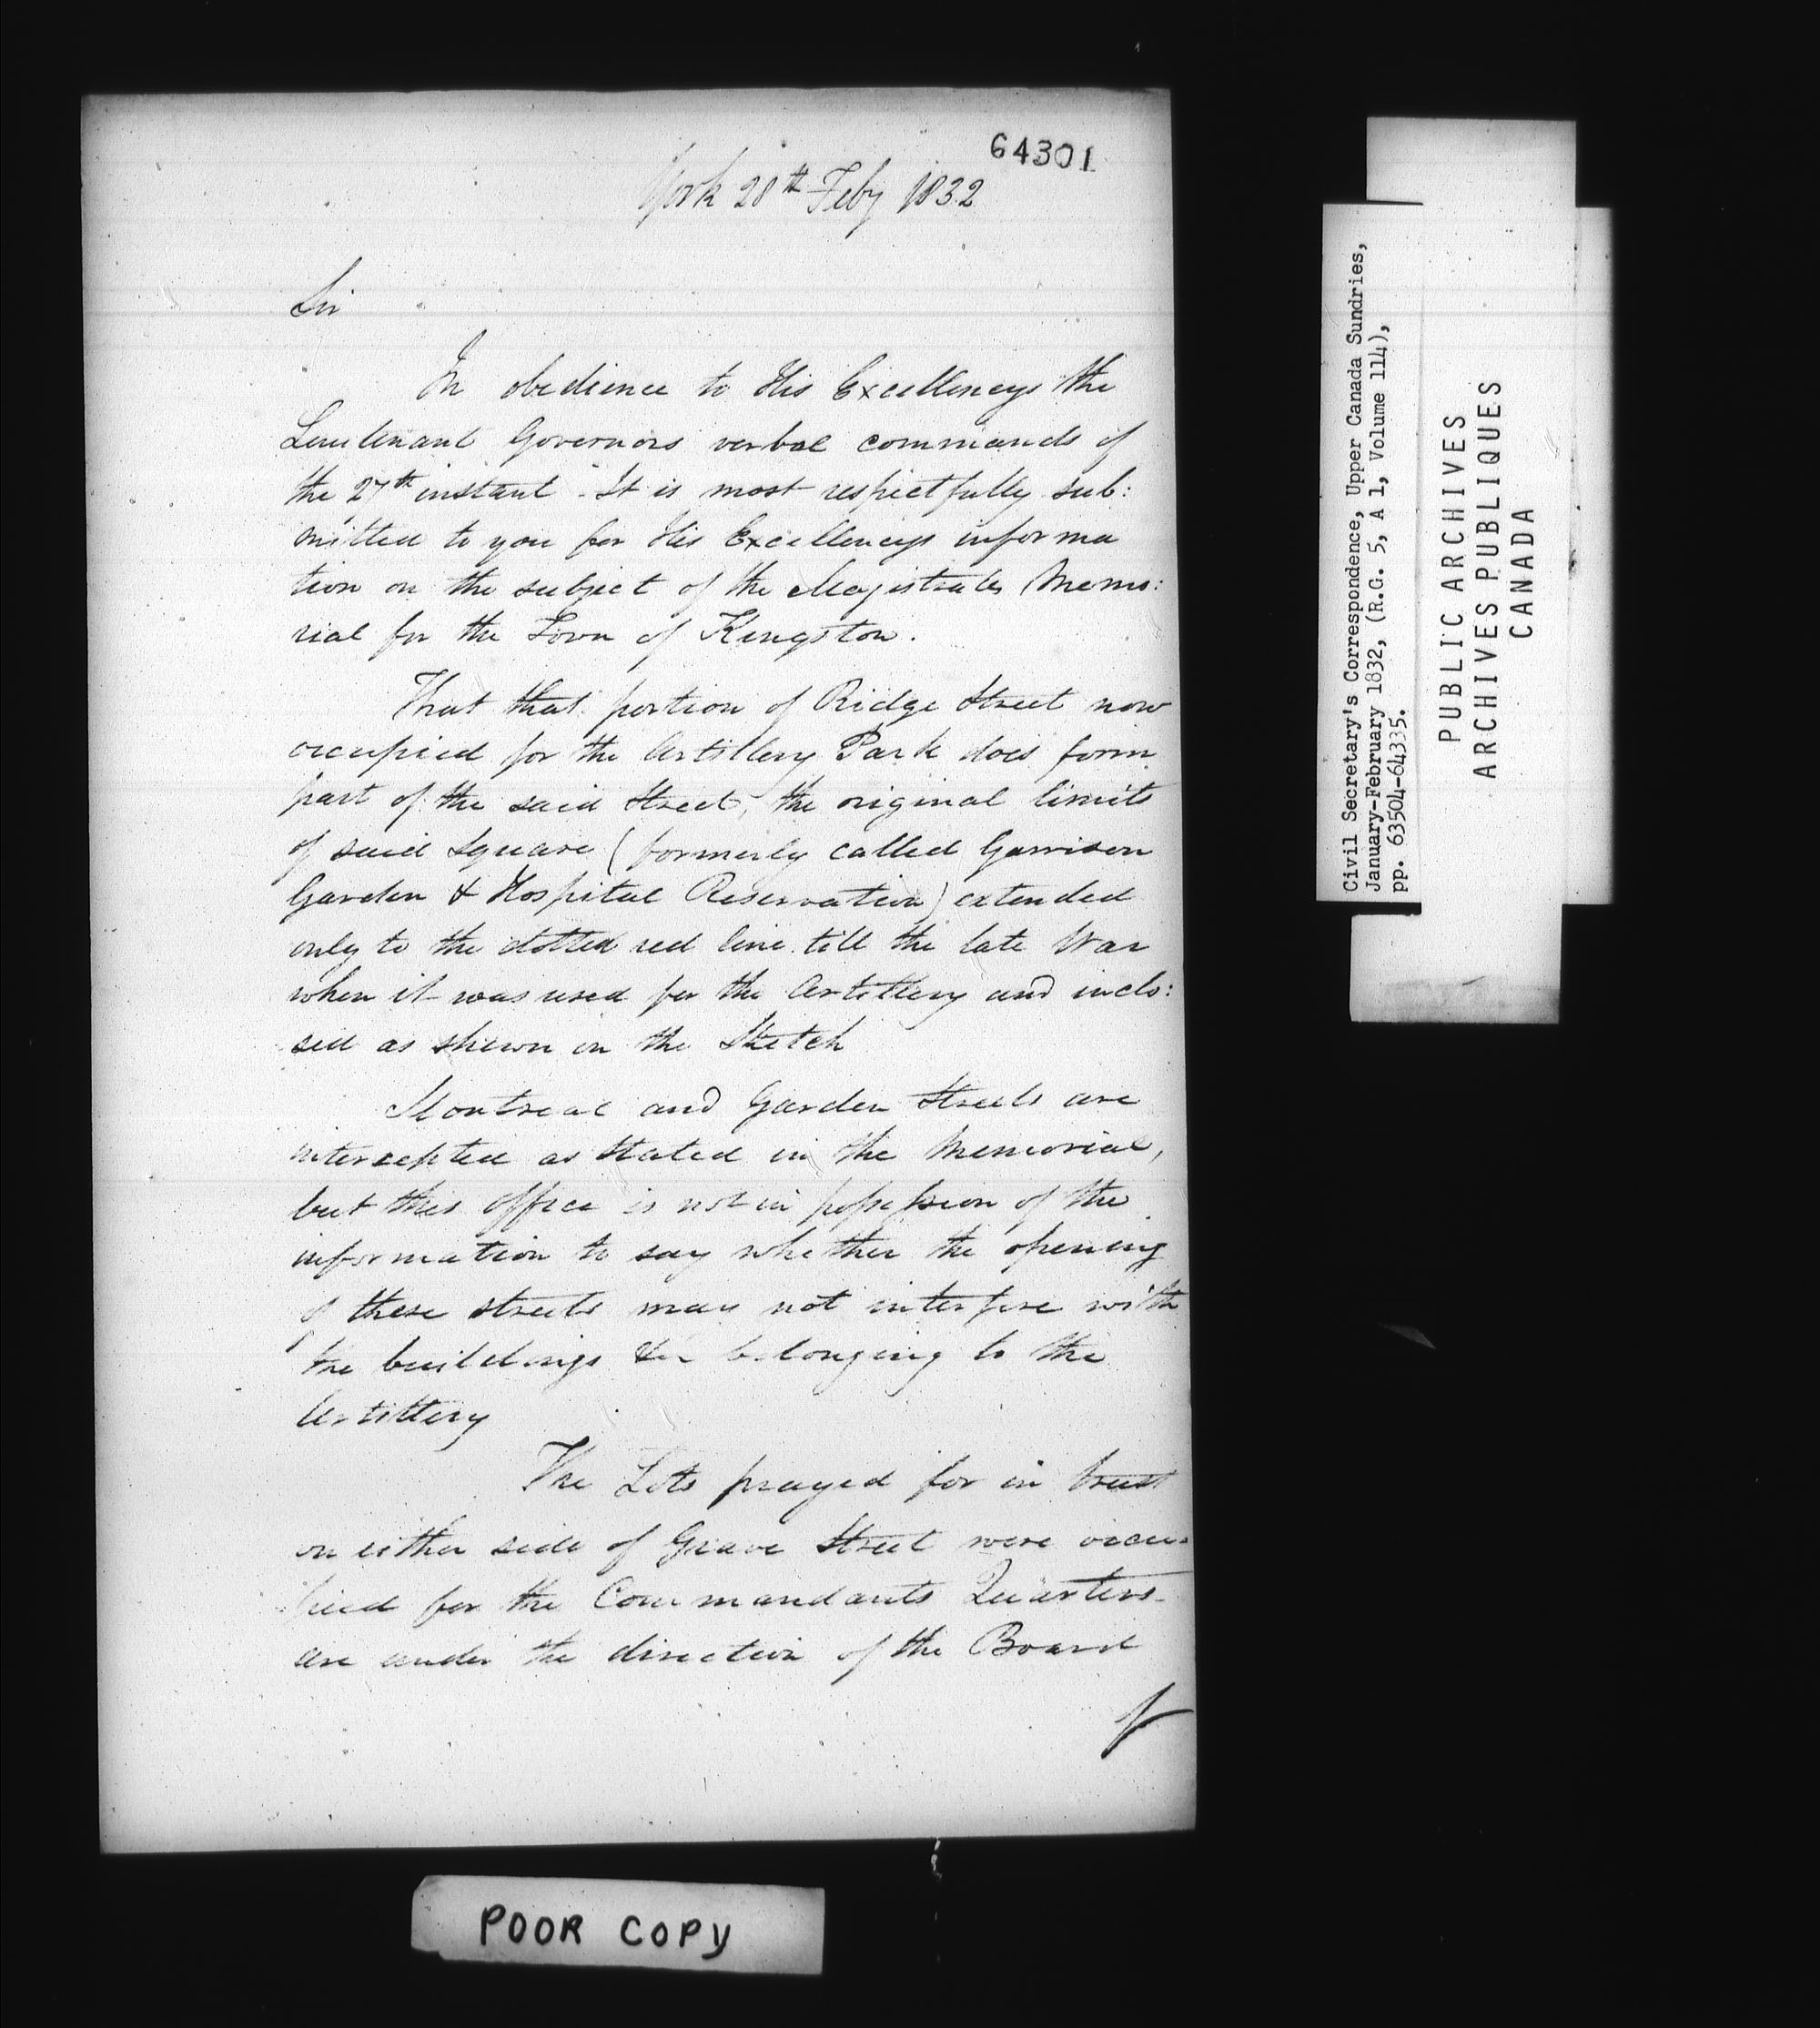 64301
York 28th Feby 1832
Sir
In obedience to His Excellencys the
Lieutenant Governors verbal commands of
the 27th instant - It is most respectfully sub:
mitted to you for His Excellencys informa
tion on the subject of the Magistrates Memo:
rial for the Town of Kingston.
That that portion of Ridge Street now
occupied for the Artillery Park does form
part of the said Street, the original limits
of said square (formerly called Garrison
Garden & Hospital Reservation) extended
only to the dotted red line till the late War
when it was used for the Artillery and inclo:
sed as shewn in the Sketch
Montreal and Garden Streets are
intercepted as stated in the Memorial,
but this Office is not in possession of the
information to say whether the opening
of these streets may not interfere with
the buildings &c belonging to the
Artillery
The Lots prayed for in trust
on either side of Grave Street were occu-
pied for the Commandants Quarters -
are under the direction of the Board
of
POOR COPY
Civil Secretary's Correspondence, Upper Canada Sundries,
January-February 1832, (R.G. 5, A 1, Volume 114),
pp. 63504-64335.
PUBLIC ARCHIVES
ARCHIVES PUBLIQUES
CANADA